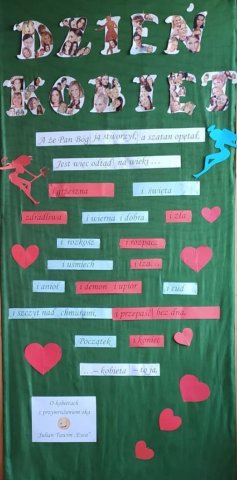 DZIEŃ
KOBIET
A że Pan Bóg ją stworzył, a szatan opętał,
Jest więc odtąd na wieki...
i grzeszna i święta
zdradliwa i wierna i dobra i zła
i rozkosz i rozpacz
i uśmiech i łza...
i anioł i demon i upiór i cud
i szczyt nad chmurami, i przepaść bez dna.
Początek i koniec
... – kobieta – to ja.
O kobietach
z przymrużeniem oka
Julian Tuwim "Ewa"